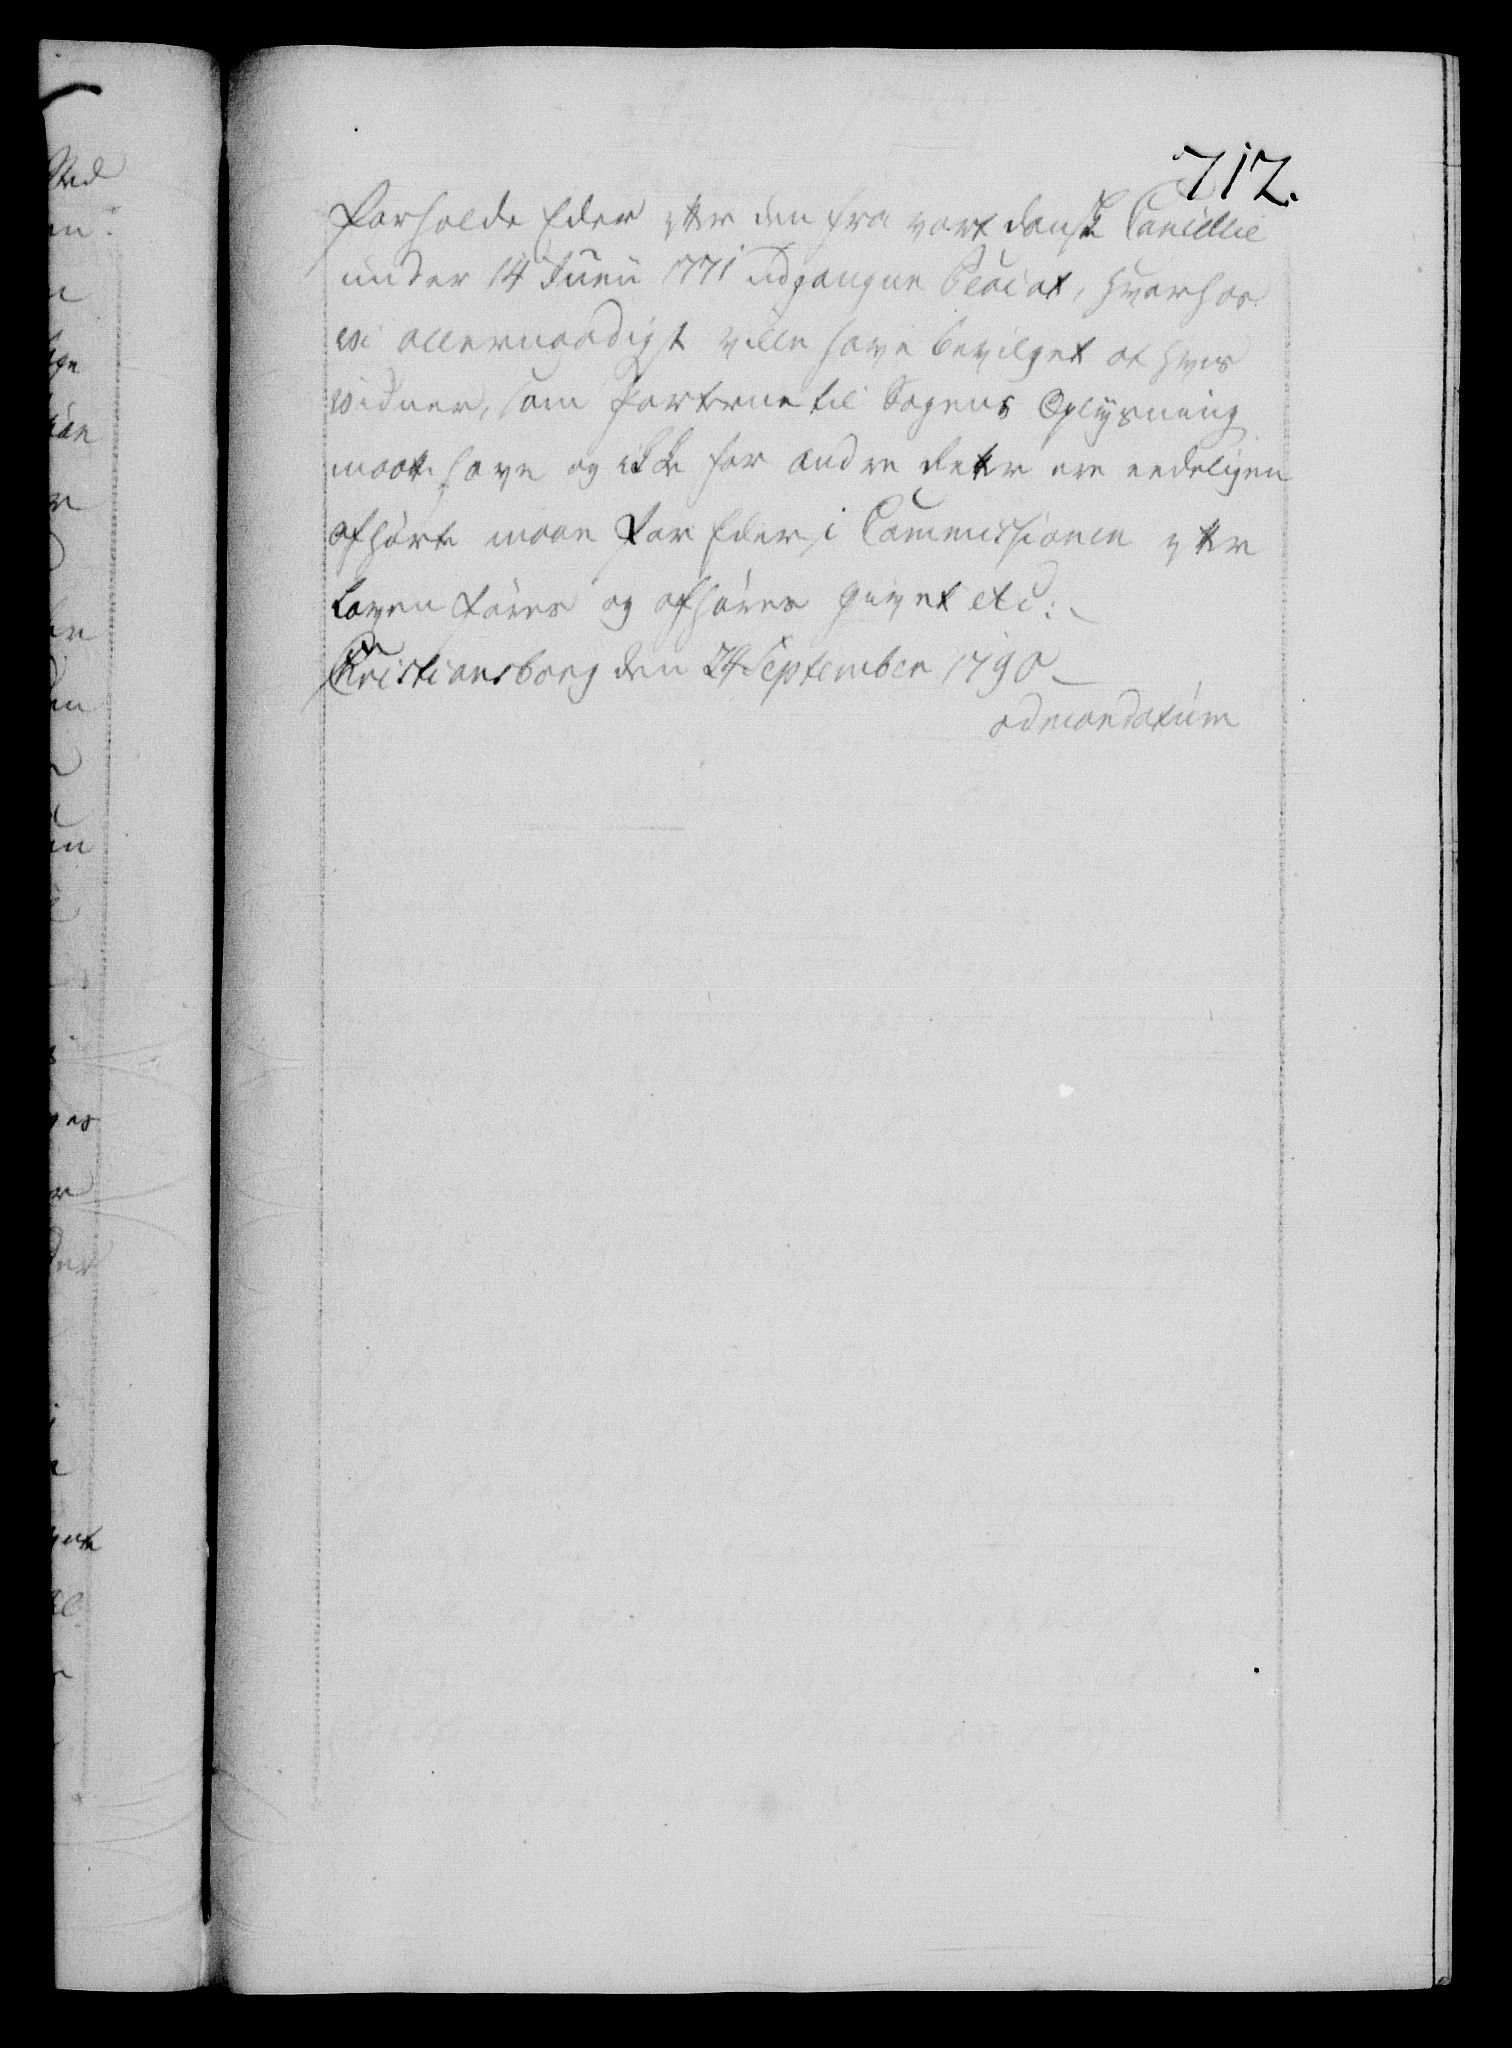 712.
forholde Eder efter den fra vort danske Cancellie
under 14 Junii 1771 udgangne Placat, hvorhos
vi allernaadigst ville have bevilget at hvis
vidner, som parterne til Sagens Oplysning
maate have og ikke for andre Retter ere eedeligen
afhørte maae for Eder i Commissionen efter
Loven føres og afhøres givet etc:
Christiansborg den 24 September 1790
ad mandatum